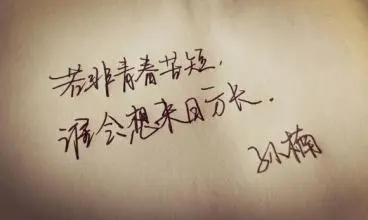 若非青春苦短，
谁会想来日方长．
孙楠